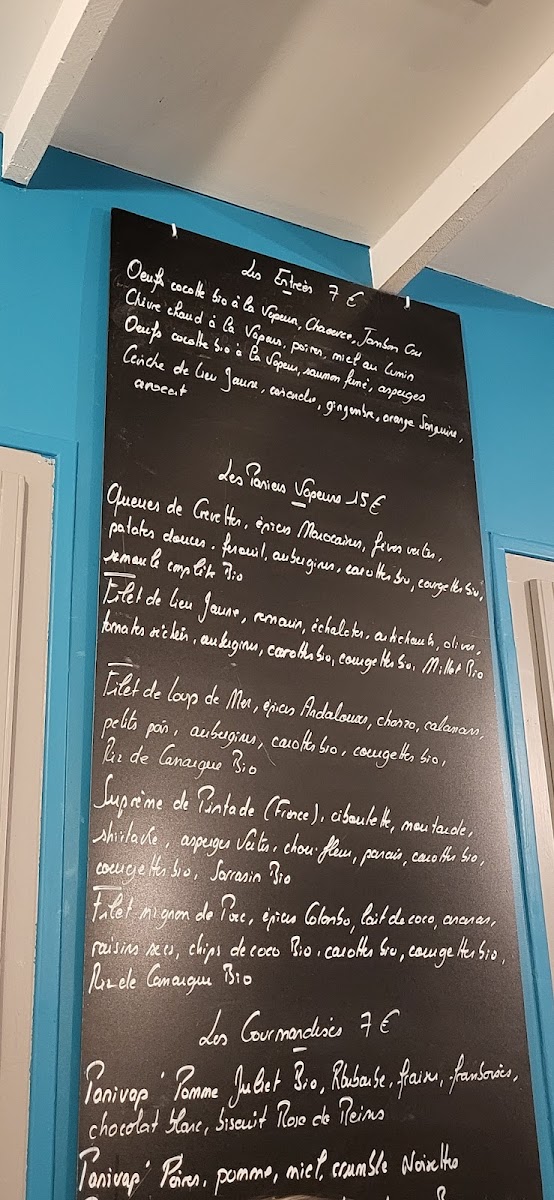 Les Entrées 7 €
Oeufs cocotte bio à la Vapeur, Chaource, Jambon Cru
Chèvre chaud à la Vapeur, poires, miel au cumin
Oeufs cocotte bio à la Vapeur, saumon fumé, asperges
Ceviche de Lieu Jaune, coriandre, gingembre, orange Sanguine,
avocat
Les Paniers Vapeurs 15 €
Queues de Crevettes, épices Marocaines, fèves vertes,
patates douces, fenouil, aubergines, carottes bio, courgettes bio,
semoule complète Bio
Filet de Lieu Jaune, romarin, échalotes, artichauts, olives,
tomates séchées, aubergines, carottes bio, courgettes bio, Millet Bio
Filet de Loup de Mer, épices Andalouses, chorizo, calamars,
petits pois, aubergines, carottes bio, courgettes bio,
Riz de Camargue Bio
Suprême de Pintade (France), ciboulette, moutarde,
shiitake, asperges Vertes, chou-fleur, panais, carottes bio,
courgettes bio, Sarrasin Bio
Filet mignon de Porc, épices Colombo, lait de coco, ananas,
raisins secs, chips de coco Bio, carottes bio, courgettes bio,
Riz de Camargue Bio
Les Gourmandises 7 €
Panivap' Pomme Juliet Bio, Rhubarbe, fraises, framboises,
chocolat blanc, biscuit Rose de Reims
Panivap' Poires, pomme, miel, crumble Noisettes